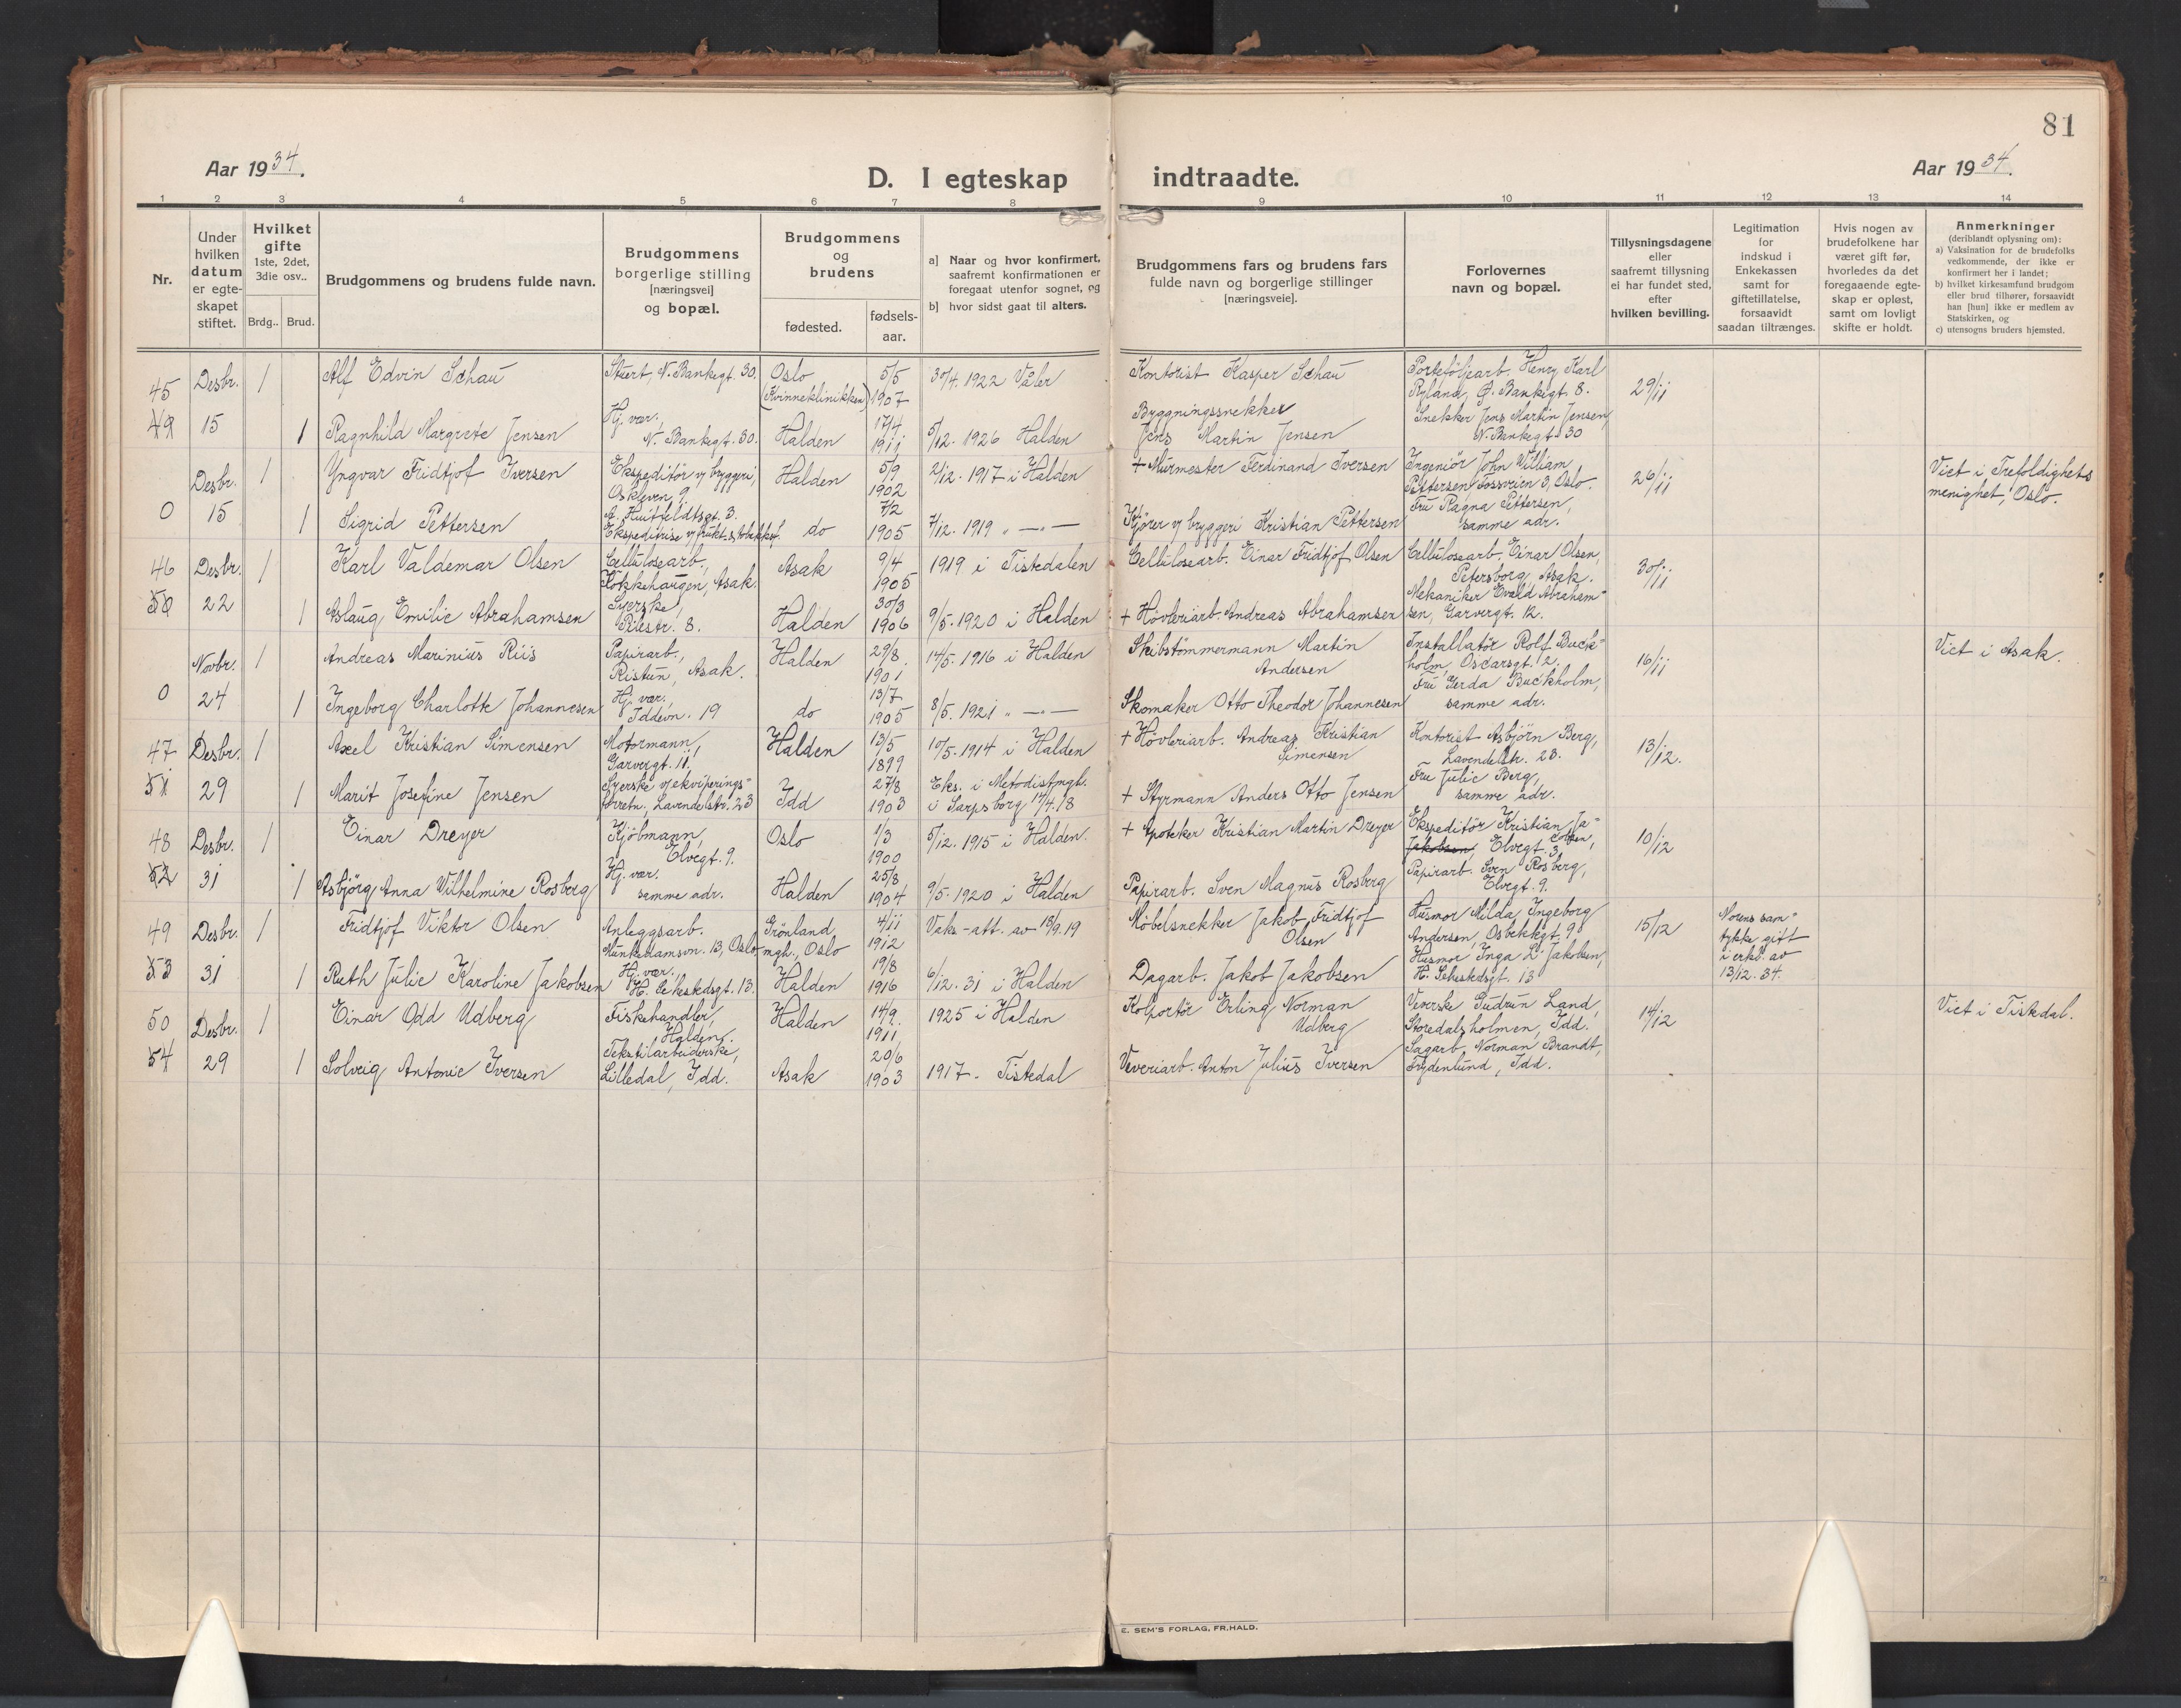 81
Aar 1934.
D. I egteskap indtraadte.
Aar 1934.
1 2 3 4 5 6 7 8 9 10 11 12 13 14
Nr.
Under hvilken datum er egteskapet stiftet.
Hvilket gifte 1ste, 2det, 3die osv..
Brdg.. Brud.
Brudgommens og brudens fulde navn.
Brudgommens borgerlige stilling [næringsvei] og bopæl.
Brudgommens og brudens
fødested.
fødsels-aar.
a] Naar og hvor konfirmert, saafremt konfirmationen er foregaat utenfor sognet, og
b] hvor sidst gaat til alters.
Brudgommens fars og brudens fars fulde navn og borgerlige stillinger [næringsveie].
Forlovernes navn og bopæl.
Tillysningsdagene eller saafremt tillysning ei har fundet sted, efter hvilken bevilling.
Legitimation for indskud i Enkekassen samt for giftetillatelse, forsaavidt saadan tiltrænges.
Hvis nogen av brudefolkene har været gift før, hvorledes da det foregaaende egteskap er opløst, samt om lovligt skifte er holdt.
Anmerkninger (deriblandt oplysning om):
a) Vaksination for de brudefolks vedkommende, der ikke er konfirmert her i landet;
b) hvilket kirkesamfund brudgom eller brud tilhører, forsaavidt han [hun] ikke er medlem av Statskirken, og
c) utensogns bruders hjemsted.
45 Desbr. 1 Alf Edvin Schau Stuert, N. Bankegt. 30. Oslo (Kvinneklinikken) 5/5 1907 30/4. 1922 Våler Kontorist Kasper Schau Porteføljearb. Henry Karl Ryland, Ø. Bankegt. 8. 29/11
49 15 1 Ragnhild Margrete Jensen Hj. vær., N. Bankegt. 30. Halden 17/4 1911 5/12. 1926 Halden Bygningssnekker Jens Martin Jensen Snekker Jens Martin Jensen, N. Bankegt. 30
Desbr. 1 Yngvar Fridtjof Iversen Ekspeditör v/ bryggeri, Halden 5/9 1902 2/12. 1917 i Halden + Murmester Ferdinand Iversen Ingeniör John William Pettersen, Fossveien 3, Oslo. 26/11 Viet i Trefoldighets menighet, Oslo.
0 15 1 Sigrid Pettersen A. Huitfeldtsgt. 3. do 7/2 1905 7/12. 1919 " —"— Kjører v/ bryggeri Kristian Pettersen Fru Ragna Pettersen, samme adr.
46 Desbr. 1 Karl Valdemar Olsen Cellulosearb., Kokkehaugen, Asak. Asak 9/4 1905 1919 i Tistedalen Cellulosearb. Einar Fridtjof Olsen Cellulosearb. Einar Olsen, Petersborg, Asak. 30/11
50 22 1 Aslaug Emilie Abrahamsen Syerske, Pilestr. 8. Halden 30/3 1906 9/5. 1920 i Halden + Høvleriarb. Andreas Abrahamsen Mekaniker Evald Abrahamsen, Garvergt. 12.
Novbr. 1 Andreas Marinius Riis Papirarb., Ristun, Asak. Halden 29/8 1901 14/5. 1916 i Halden Skibstömmermann Martin Andersen Installatör Rolf Buckholm, Oscarsgt. 2. 16/11 Viet i Asak.
0 24 1 Ingeborg Charlotte Johannesen Hj. vær., Iddevn. 19 do 13/7 1905 8/5. 1921 " —"— Skomaker Otto Theodor Johannesen Fru Gerda Buckholm, samme adr.
47 Desbr. 1 Axel Kristian Simensen Motormann, Garvergt. 11. Halden 13/5 1899 10/5. 1914 i Halden + Høvleriarb. Andreas Kristian Simensen Kontorist Asbjörn Berg, Lavendelstr. 23. 13/12.
51 29 1 Marit Josefine Jensen Syerske v/ ekviperingsforretn., Lavendelstr. 23 Idd 27/8 1903 Eks. i Metodistmgh. i Sarpsborg 14/4. 18 + Styrmann Anders Otto Jensen Fru Julie Berg, samme adr.
48 Desbr. 1 Einar Dreyer Kjöbmann, Elvegt. 9. Oslo 1/3 1900 5/12. 1915 i Halden. + Apoteker Kristian Martin Dreyer Ekspeditör Kristian Jacobsen, Elvegt. 3, 10/12
52 31 1 Asbjörg Anna Vilhelmine Rosberg Hj. vær. samme adr. Halden 25/8 1904 9/5. 1920 i Halden Papirarb. Sven Magnus Rosberg Papirarb. Sven Rosberg, Elvegt. 9.
49 Desbr. 1 Fridtjof Viktor Olsen Anleggsarb. Munkedamsvn. 13, Oslo Grönland mgh., Oslo 4/11 1912 Vaks-att. av 18/9. 19 Møbelsnekker Jakob Fridtjof Olsen Husmor Milda Ingeborg Andersen, Osbekkgt. 9 15/12 Morens samtykke gift i erkl. av 13/12. 34.
53 31 1 Ruth Julie Karoline Jakobsen Hj. vær. H. Sehestedsgt. 13. Halden 19/8 1916 6/12. 31 i Halden Dagarb. Jakob Jakobsen Husmor Inga L. Jakobsen, H. Sehestedsgt. 13
50 Desbr. 1 Einar Odd Udberg Fiskehandler, Halden. Halden 14/9. 1911 1925 i Halden Kolportör Erling Norman Udberg Veverske Gudrun Land, Storedalsholmen, Idd. 14/12 Viet i Tistedal.
54 29 1 Solveig Antonie Iversen Tekstilarbeiderske, Lilledal, Idd. Asak 20/6 1903 1917 - Tistedal Veveriarb. Anton Julius Iversen Sagarb. Norman Brandt, Frydenlund, Idd.
E. SEM'S FORLAG, FR.HALD.